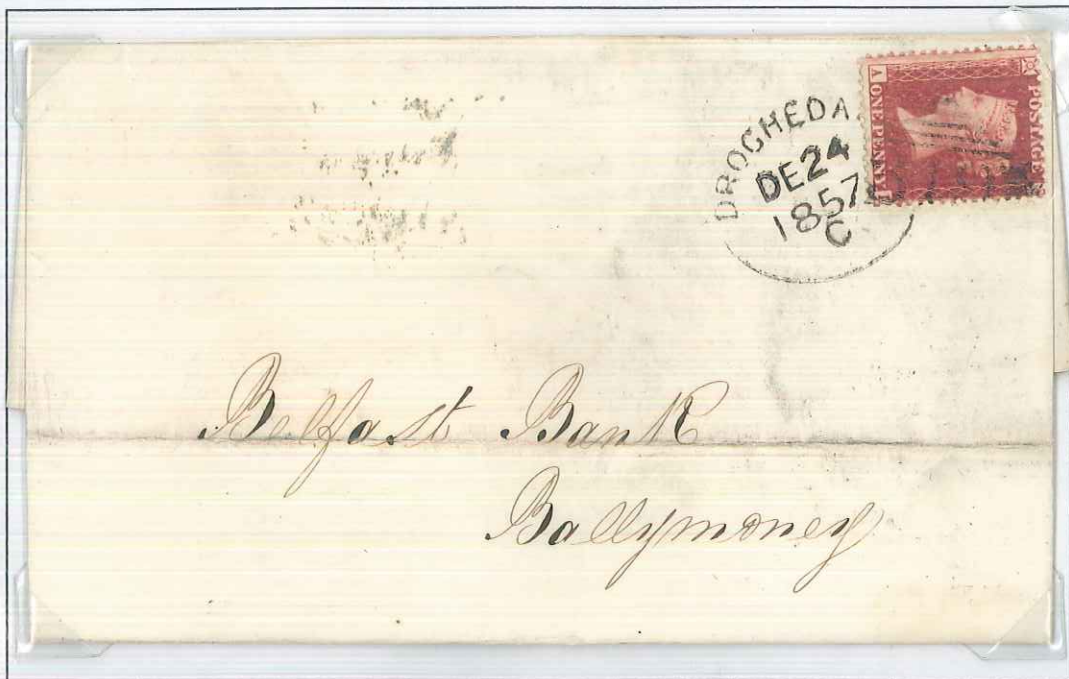 DROGHEDA
DE 24
1857
C
POSTAGE
ONE PENNY
A
Belfast Bank
Ballymoney